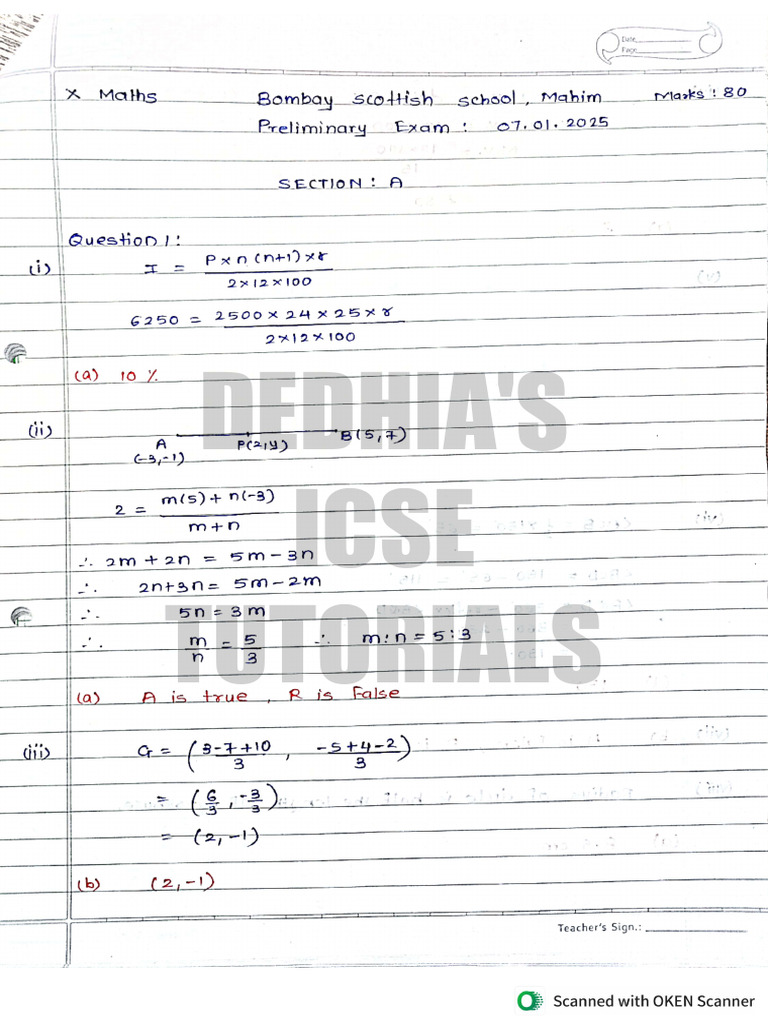 Date
Page
X Maths Bombay Scottish School, Mahim Marks: 80
Preliminary Exam: 07.01.2025
SECTION: A
Question 1:
(i) I = P×n(n+1)×r / 2×12×100
6250 = 2500×24×25×r / 2×12×100
(a) 10 %
(ii) A (-3,-1) P(2,y) B(5,7)
2 = m(5)+n(-3) / m+n
∴ 2m + 2n = 5m - 3n
∴ 2n+3n = 5m - 2m
∴ 5n = 3m
∴ m/n = 5/3 ∴ m:n = 5:3
(a) A is true, R is False
(iii) G = (3-7+10 / 3, -5+4-2 / 3)
= (6/3, -3/3)
= (2,-1)
(b) (2,-1)
DEDHIA'S
ICSE
TUTORIALS
Teacher's Sign.:
Scanned with OKEN Scanner